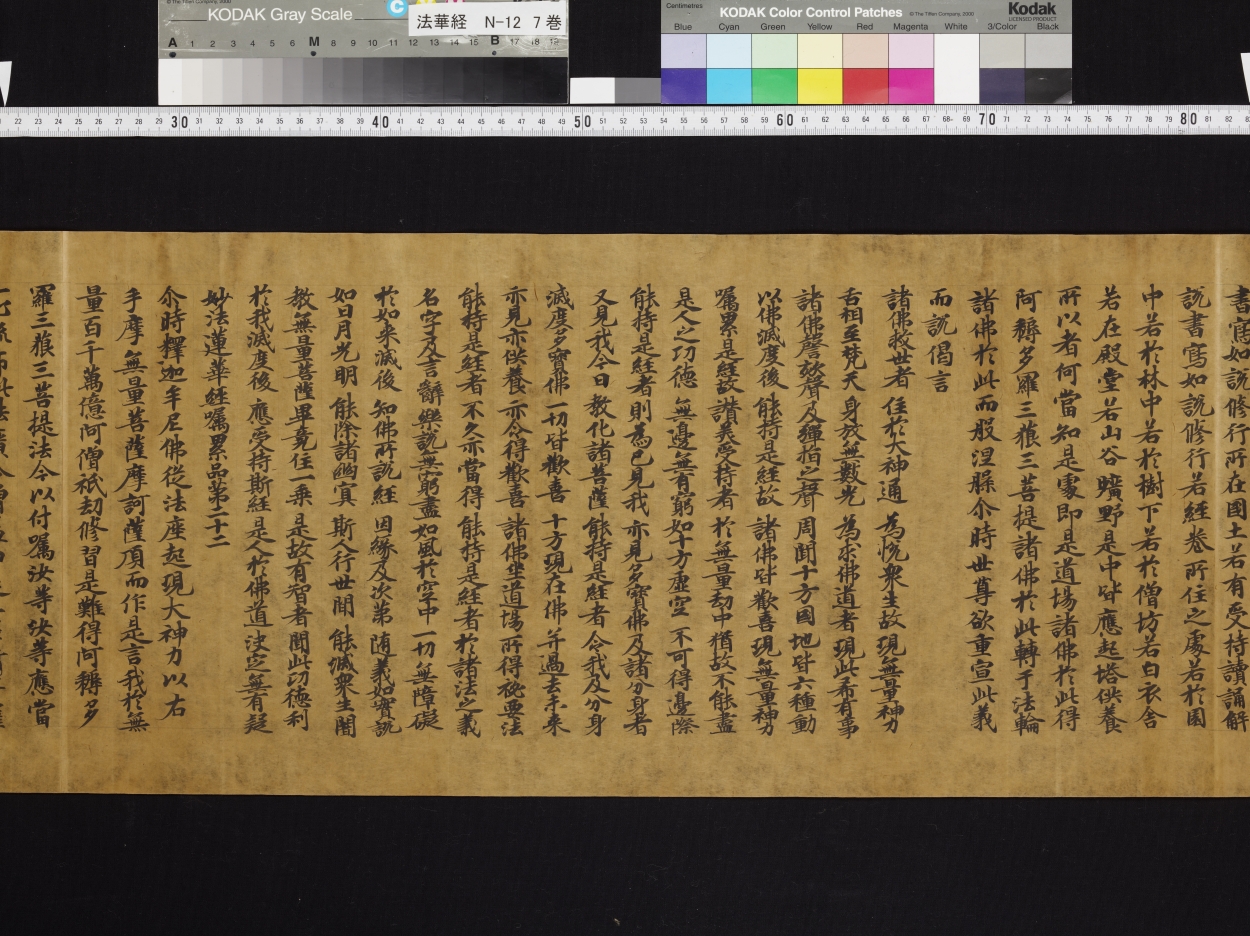 KODAK Gray Scale
法華経 N-12 7巻
A 1 2 3 4 5 6 M 8 9 10 11 12 13 14 15 B 17 18 19
Centimetres
KODAK Color Control Patches
© The Tiffen Company, 2000
Kodak
LICENSED PRODUCT
Blue Cyan Green Yellow Red Magenta White 3/Color Black
書寫如說修行所在國土若有受持讀誦解
說書寫如說修行若經卷所住之處若於園
中若於林中若於樹下若於僧坊若白衣舍
若在殿堂若山谷曠野是中皆應起塔供養
所以者何當知是處即是道場諸佛於此得
阿耨多羅三藐三菩提諸佛於此轉于法輪
諸佛於此而般涅槃尒時世尊欲重宣此義
而說偈言
諸佛救世者 住於大神通 為悅衆生故 現無量神力
舌相至梵天 身放無數光 為求佛道者 現此希有事
諸佛謦欬聲 及彈指之聲 周聞十方國 地皆六種動
以佛滅度後 能持是經故 諸佛皆歡喜 現無量神力
囑累是經故 讚美受持者 於無量劫中 猶故不能盡
是人之功德 無邊無有窮 如十方虛空 不可得邊際
能持是經者 則為已見我 亦見多寶佛 及諸分身者
又見我今日 教化諸菩薩 能持是經者 令我及分身
滅度多寶佛 一切皆歡喜 十方現在佛 并過去未來
亦見亦供養 亦令得歡喜 諸佛坐道場 所得秘要法
能持是經者 不久亦當得 能持是經者 於諸法之義
名字及言辭 樂說無窮盡 如風於空中 一切無障礙
於如来滅後 知佛所說經 因緣及次第 隨義如實說
如日月光明 能除諸幽冥 斯人行世間 能滅衆生闇
教無量菩薩 畢竟住一乘 是故有智者 聞此功德利
於我滅度後 應受持斯經 是人於佛道 決定無有疑
妙法蓮華經囑累品第二十二
尒時釋迦牟尼佛從法座起現大神力以右
手摩無量菩薩摩訶薩頂而作是言我於無
量百千萬億阿僧祇劫修習是難得阿耨多
羅三藐三菩提法今以付囑汝等汝等應當